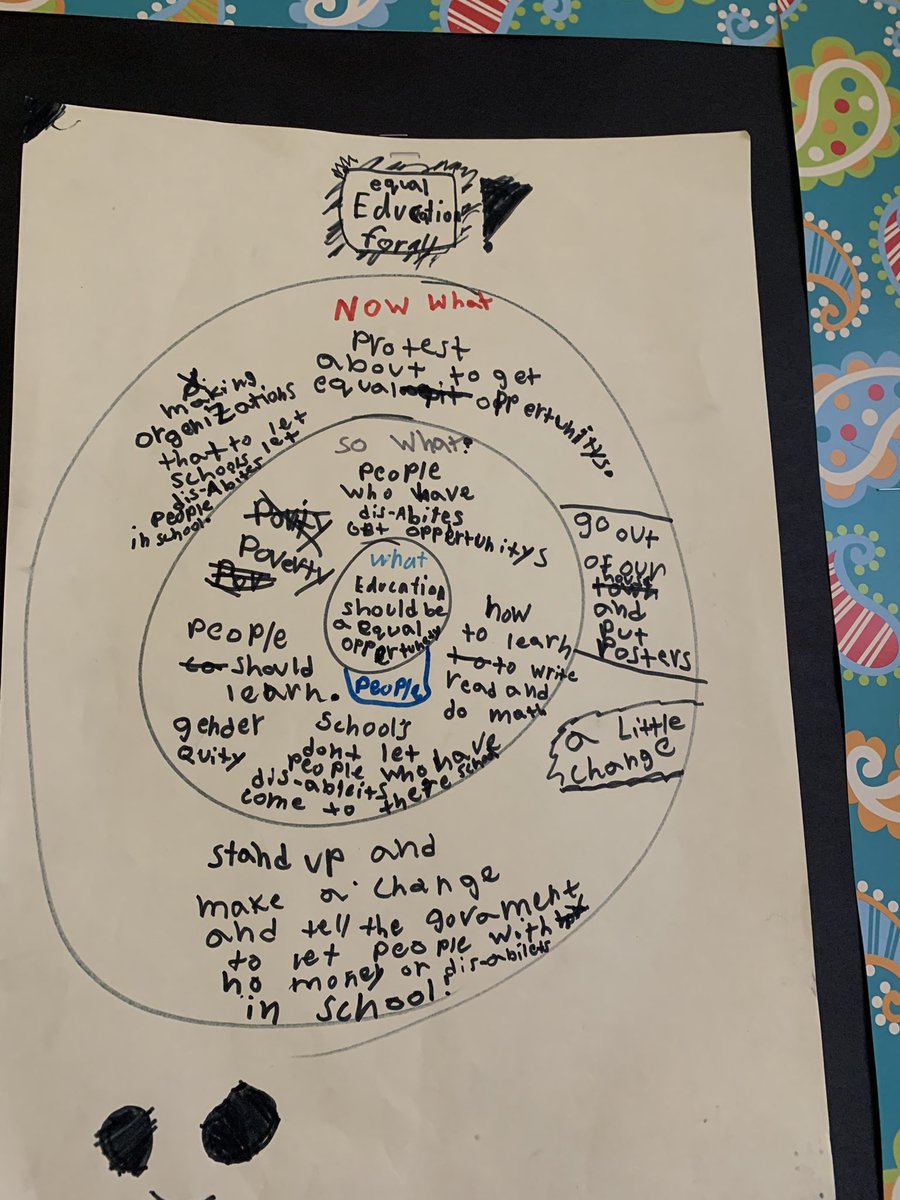 equal
Education
for all
NOW What
Protest
about to get
equal oppertunitys.
making
organizations
that to let
schools let
dis-Abites
people
in school.
So What?
people
who have
dis-Abites
oppertunitys
Poverty
go out
of our
house
and
put
Posters
What
Education
should be
a equal
oppertunedy
people
how
to learn
to write
read and
do math
people
should
learn.
gender
Quity
School's
dont let
people who have
dis-ableits
come to there school
a Little
change
stand up and
make a change
and tell the govament
to let people with
no money or dis-abilets
in school!